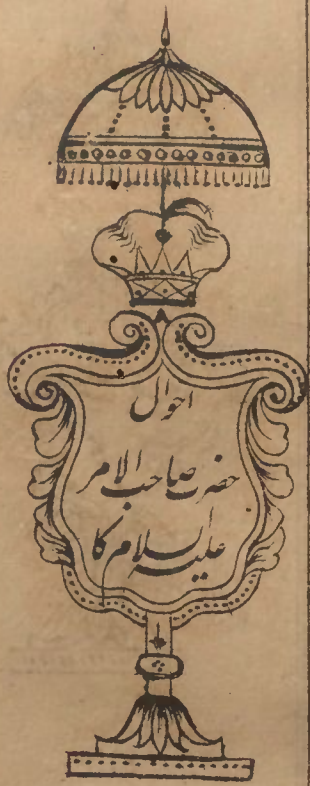 احوال
حضرت صاحب الامر
علیہ السلام کا